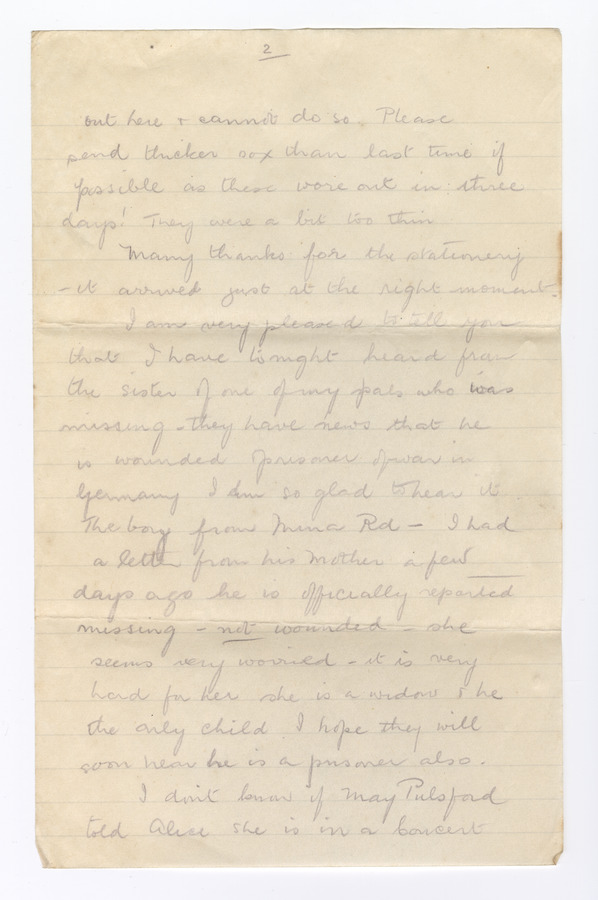 2
out here & cannot do so. Please
send thicker sox than last time if
possible as these wore out in three
days! They were a bit too thin
Many thanks for the stationery
- it arrived just at the right moment.
I am very pleased to tell you
that I have tonight heard from
the sister of one of my pals who was
missing - they have news that he
is wounded & prisoner of war in
Germany I am so glad to hear it
The boy from Mina Rd - I had
a letter from his Mother a few
days ago he is officially reported
missing - not wounded - she
seems very worried - it is very
hard for her she is a widow & he
the only child. I hope they will
soon hear he is a prisoner also.
I don't know if May Pulsford
told Alice she is in a Concert